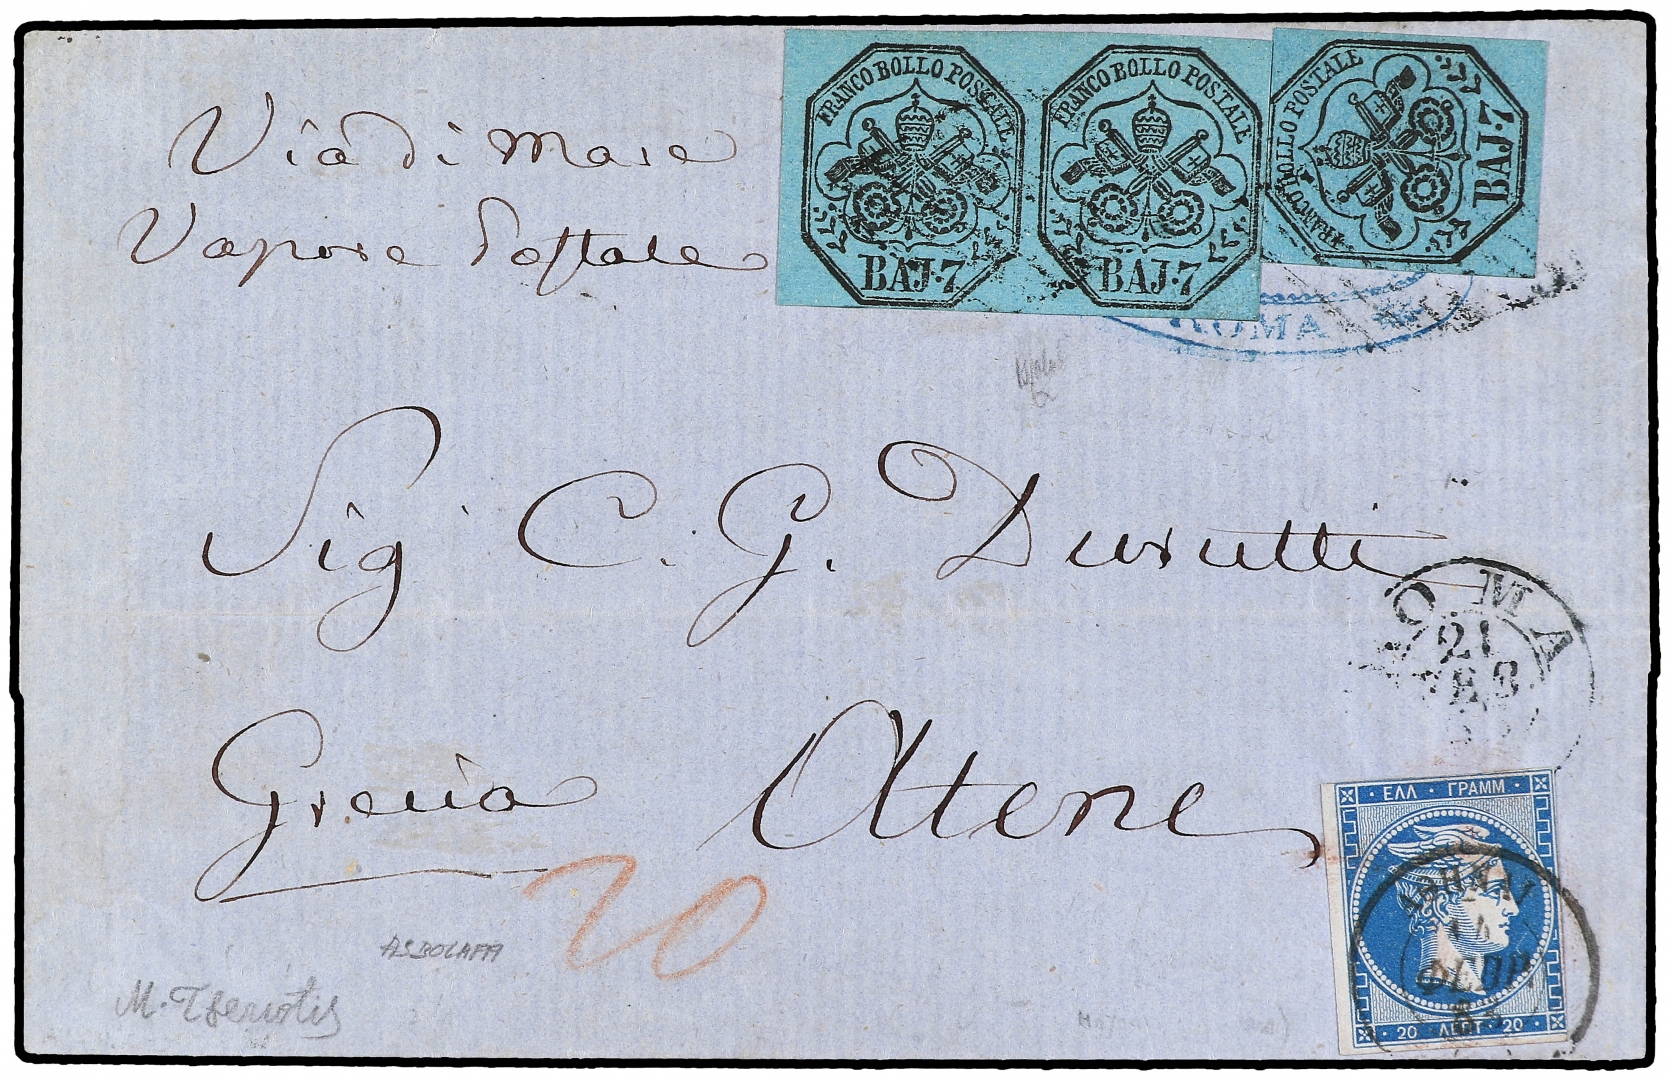 Via di Mare
Vapore Postale
FRANCO BOLLO POSTALE
BAJ·7
FRANCO BOLLO POSTALE
BAJ·7
FRANCO BOLLO POSTALE
BAJ·7
ROMA
Sig C. G. Durutti
ROMA
21
Grecia Atene
20
ΕΛΛ · ΓΡΑΜΜ
ΑΘΗΝΑΙ
ΦΕΒΡ
20 ΛΕΠΤ 20
ASBOLAFFI
M. Tseriotis